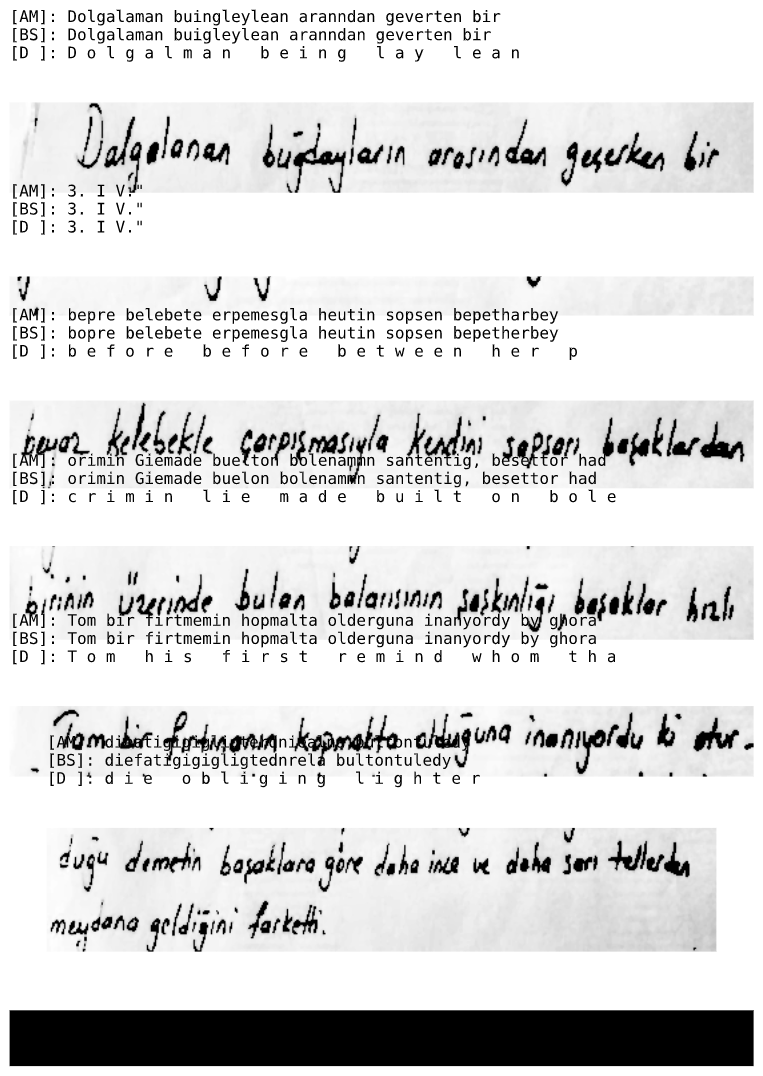 [AM]: Dolgalaman buingleylean aranndan geverten bir
[BS]: Dolgalaman buigleylean aranndan geverten bir
[D ]: D o l g a l m a n   b e i n g   l a y   l e a n
Dalgalanan buğdayların arasından geçerken bir
[AM]: 3. I V."
[BS]: 3. I V."
[D ]: 3. I V."
[AM]: bepre belebete erpemesgla heutin sopsen bepetharbey
[BS]: bopre belebete erpemesgla heutin sopsen bepetherbey
[D ]: b e f o r e   b e f o r e   b e t w e e n   h e r   p
beyaz kelebekle çarpışmasıyla kendini sapsarı başaklardan
[AM]: orimin Giemade buelton bolenammn santentig, besettor had
[BS]: orimin Giemade buelon bolenammn santentig, besettor had
[D ]: c r i m i n   l i e   m a d e   b u i l t   o n   b o l e
birinin üzerinde bulan balarısının şaşkınlığı, başaklar hızlı
[AM]: Tom bir firtmemin hopmalta olderguna inanyordy by ghora
[BS]: Tom bir firtmemin hopmalta olderguna inanyordy by ghora
[D ]: T o m   h i s   f i r s t   r e m i n d   w h o m   t h a
Tam bir fırtınanın kopmakta olduğuna inanıyordu ki otur-
[AM]:
[BS]: diefatigigigligtednrela bultontuledy
[D ]: d i e   o b l i g i n g   l i g h t e r
duğu demetin başaklara göre daha ince ve daha sarı tellerden
meydana geldiğini farketti.